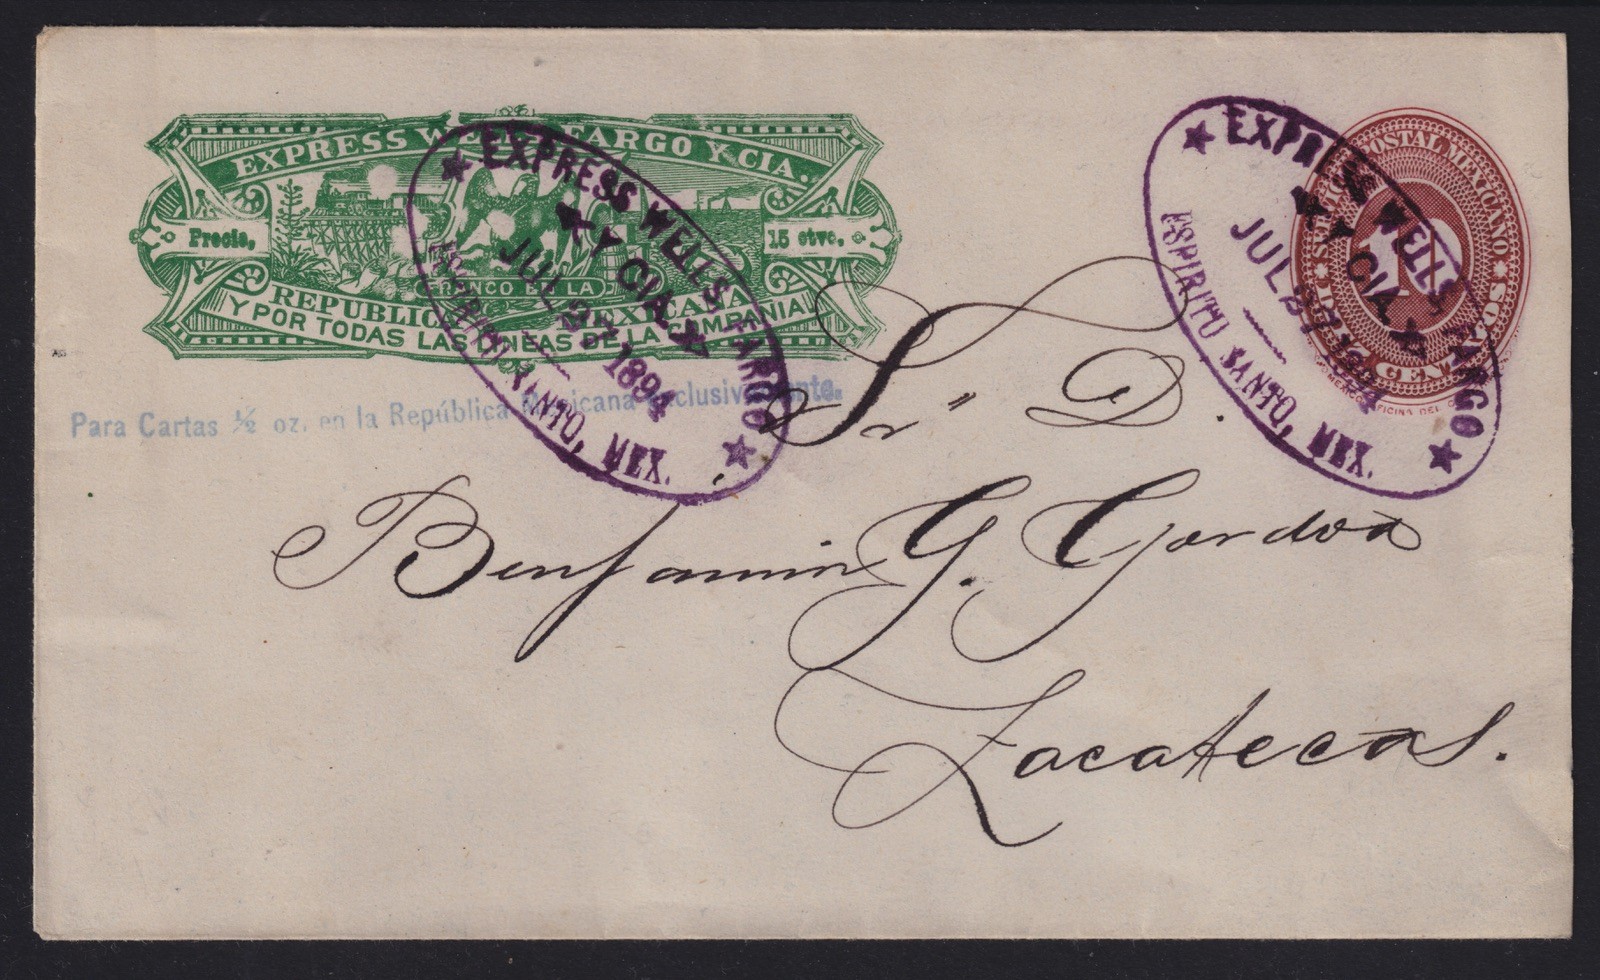 EXPRESS WELLS FARGO Y CIA.
Precio, 15 ctvs.
FRANCO EN LA
REPUBLICA MEXICANA
Y POR TODAS LAS LINEAS DE LA COMPAÑIA
Para Cartas ½ oz. en la República Mexicana exclusivamente.
EXPRESS WELLS FARGO
Y CIA
JUL 27 1894
ESPIRITU SANTO, MEX.
POSTAL MEXICANO
10
EXPRESS WELLS FARGO
Y CIA
JUL 27 1894
ESPIRITU SANTO, MEX.
Sr. D.
Benjamin G. Gordoa
Zacatecas.